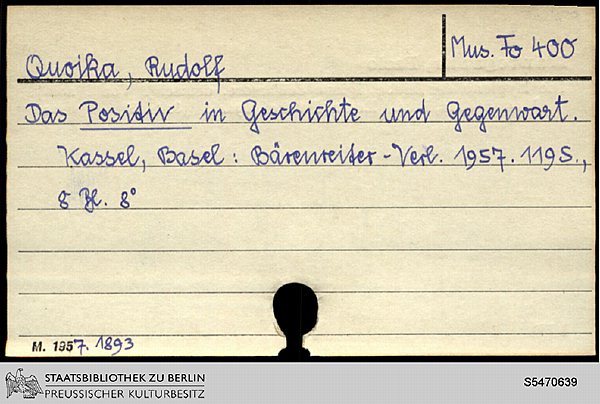 Quoika, Rudolf
Mus. Fo 400
Das Positiv in Geschichte und Gegenwart.
Kassel, Basel: Bärenreiter-Verl. 1957. 119 S.,
8 Bl. 8°
M. 1957. 1893
STAATSBIBLIOTHEK ZU BERLIN
PREUSSISCHER KULTURBESITZ
S5470639